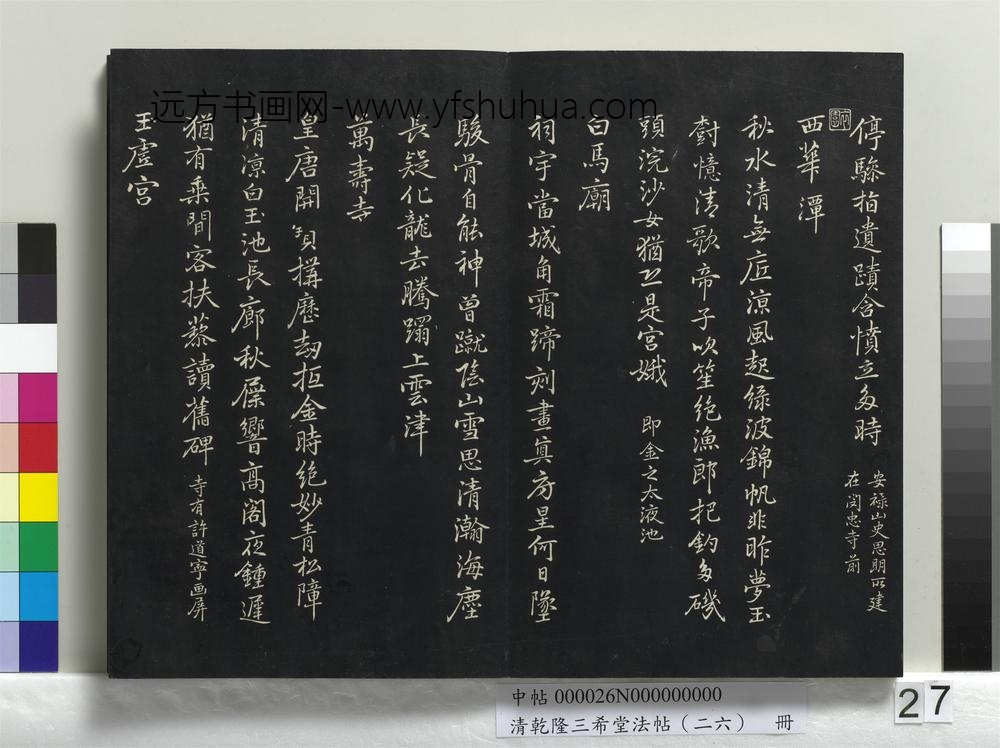 远方书画网-www.yfshuhua.com
停驂指遺蹟含憤立多時 安禄山史思明所建
在閔忠寺前
西華潭
秋水清無底涼風起緑波錦帆非昨夢玉
樹憶清歌帝子吹笙絶漁郎把釣多磯
頭浣沙女猶恐是宫娥 即金之太液池
白馬廟
祠宇當城角霜蹄刻畫真房星何日墜
駿骨自能神曾蹴陰山雪思清瀚海塵
長疑化龍去騰蹋上雲津
萬壽寺
皇唐開寶構歷劫抵金時絶妙青松障
清涼白玉池長廊秋屧響高閣夜鍾遲
猶有乗間客扶藜讀舊碑 寺有許道寧画屏
玉虛宫
中帖 000026N000000000
清乾隆三希堂法帖（二六） 冊
27